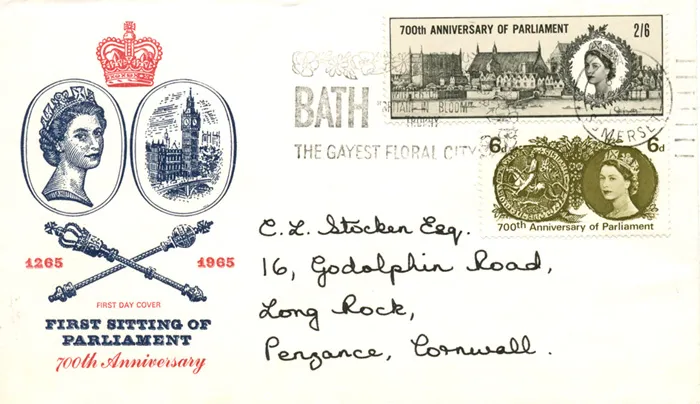 700th ANNIVERSARY OF PARLIAMENT 2/6
BATH "BRITAIN IN BLOOM"
TROPHY
THE GAYEST FLORAL CITY
SOMERSET
6d 6d
700th Anniversary of Parliament
1265 1965
FIRST DAY COVER
FIRST SITTING OF
PARLIAMENT
700th Anniversary
C. L. Stocken Esq.
16, Godolphin Road,
Long Rock,
Penzance, Cornwall.